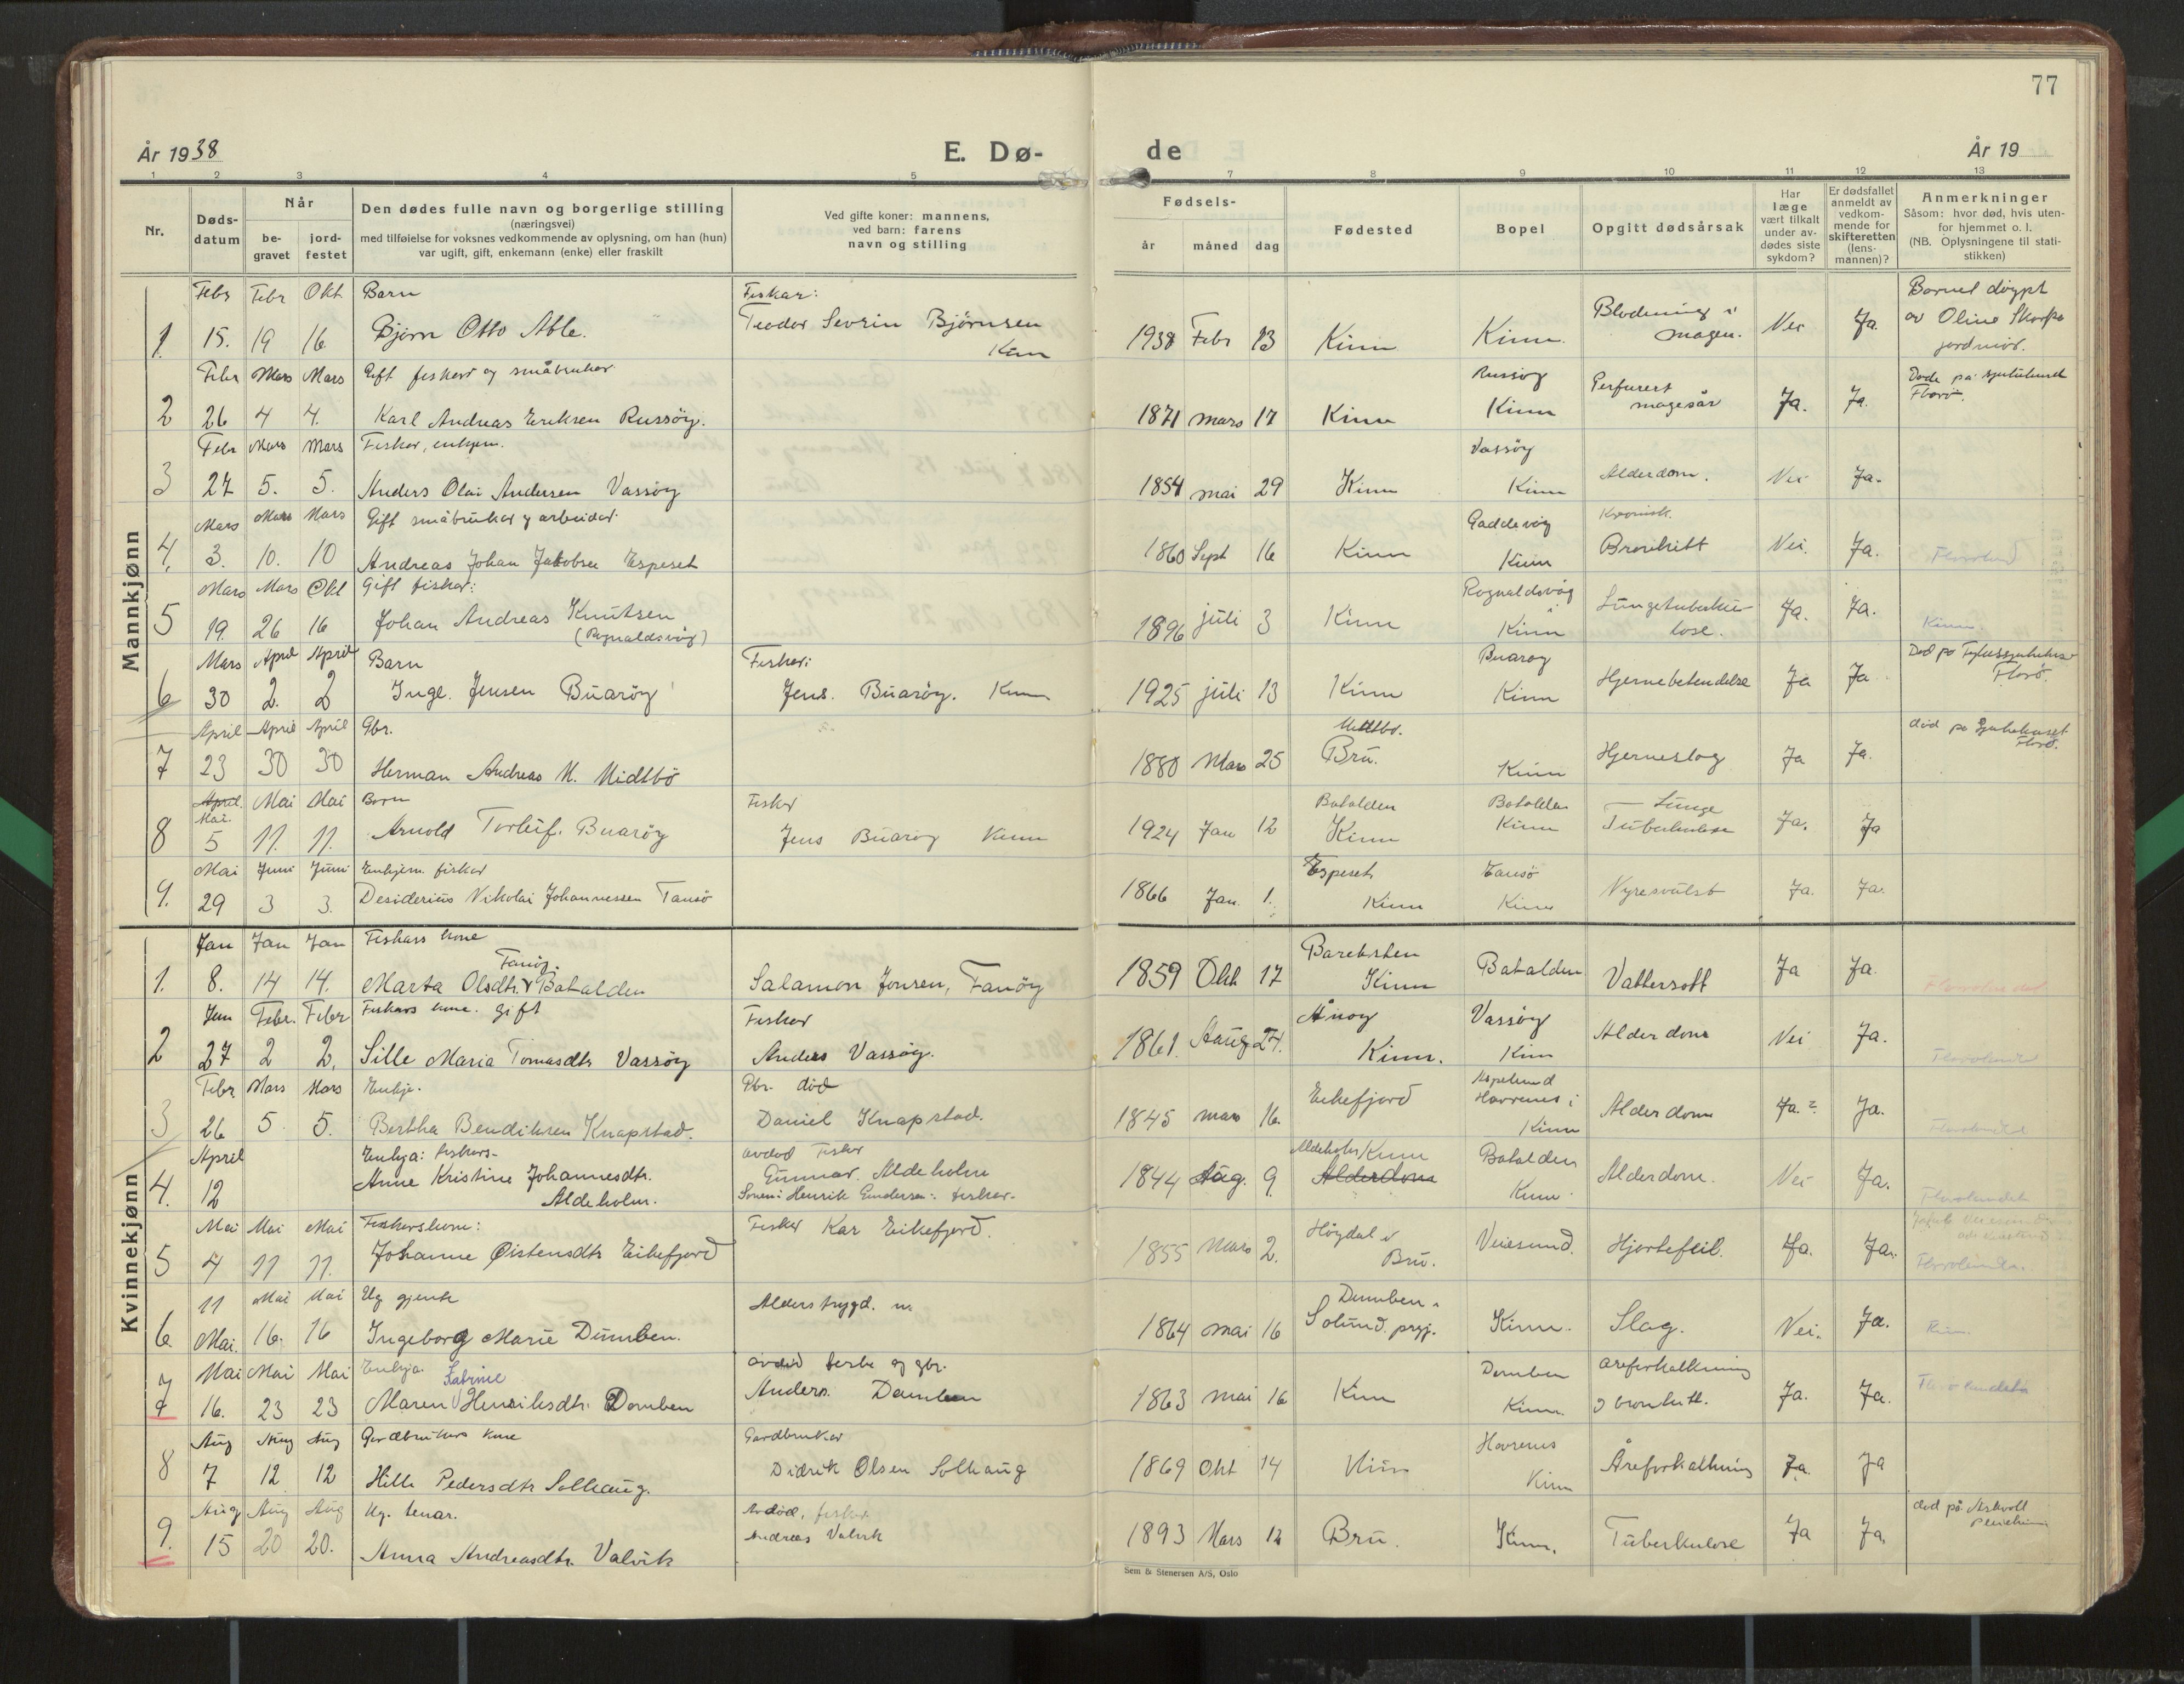 77
År 1938 E. Dø- de År 19
1 2 3 4 5 7 8 9 10 11 12 13
Nr.
Døds-
datum
Når
be-
gravet
jord-
festet
Den dødes fulle navn og borgerlige stilling
(næringsvei)
med tilføielse for voksnes vedkommende av oplysning, om han (hun)
var ugift, gift, enkemann (enke) eller fraskilt
Ved gifte koner: mannens,
ved barn: farens
navn og stilling
Fødsels-
år måned dag
Fødested
Bopel
Opgitt dødsårsak
Har
læge
vært tilkalt
under av-
dødes siste
sykdom?
Er dødsfallet
anmeldt av
vedkom-
mende for
skifteretten
(lens-
mannen)?
Anmerkninger
Såsom: hvor død, hvis uten-
for hjemmet o. l.
(NB. Oplysningene til stati-
stikken)
Mannkjønn
Febr Febr Okt Barn Fiskar: Blødning i Barnet døypt
1. 15. 19 16 Bjørn Otto Able. Teodor Sevrin Bjørnsen 1938 Febr 13 Kinn Kinn magen. Nei Ja. av Oline Skorpa
Kinn jordmor.
Febr Mars Mars Gift fisker og småbruker Russøy Perforert Døde på sjukehuset
2 26 4 4. Karl Andreas Eriksen Russøy. 1871 mars 17 Kinn Kinn magesår Ja. Ja. Florø.
Febr Mars Mars Fisker, enkjem. Vassøy
3 27 5. 5. Anders Olai Andersen Vassøy 1854 mai 29 Kinn Kinn Alderdom. Nei Ja.
Mars Mars Mars Gift småbruker og arbeider Gaddevåg Kronisk.
4. 3. 10. 10 Andreas Johan Jakobsen Espeset 1860 Sept 16 Kinn Kinn Bronkitt Nei. Ja.
Mars Mars Okt Gift fisker: Rognaldsvåg Lungetuberku-
5 19. 26 16 Johan Andreas Knutsen 1896 juli 3 Kinn i Kinn lose. Ja. Ja. Kinn.
(Rognaldsvåg)
Mars April April Barn Fisker: Buarøy
6 30 2. 2 Inge. Jensen Buarøy Jens. Buarøy. Kinn 1925 juli 13 Kinn Kinn Hjernebetendelse Ja Ja Florø.
April April April Gbr. Midtbø. død på Sjukehuset
7 23 30 30 Herman Andreas M. Midtbö 1880 Mars 25 Bru. Kinn Hjerneslag Ja Ja. Florø.
April. Mai Mai Barn Fisker Batalden Batalden Lunge
Mai.
8 5 11. 11. Arnold Torleif. Buarøy Jens Buarøy Kinn 1924 Jan 12 Kinn Kinn Tuberkulose Ja. Ja
Mai Juni Juni Enkjem. fisker Espeset Tansø
9. 29 3 3. Desiderius Nikolai Johannessen Tansö 1866 Jan. 1. Kinn Kinn Nyresvulst Ja. Ja.
Kvinnekjønn
Jan Jan Jan Fiskars kone Bareksten
Fanøy.
1. 8. 14 14. Marta Olsdtr. Batalden Salamon Jonsen, Fanöy 1859 Okt 17 Kinn Batalden Vattersott Ja Ja.
Jan Febr. Febr Fiskars kone. gift Fisker Vassöy
2 27 2 2. Sille Maria Tomasdtr Vassöy Anders Vassöy. 1861. Aug 27. Kinn. Kinn Alderdom Nei Ja.
Febr Mars Mars Enkje. Gbr. död
3 26 5 5. Bertha Bendiksen Knapstad. Daniel Knapstad. 1845 mars 16. Eikefjord Havrenes i Kinn Alderdom Ja.? Ja.
April Enkja: fiskers- avdød Fisker Aldeholm Kinn Batalden
4. 12 Anne Kristine Johannesdtr. Gunnar Aldeholm 1844 Aug. 9. Alderdom Kinn Alderdom. Nei Ja.
Aldeholm. Sønn: Henrik Gundersen: fisker.
Mai Mai Mai Fiskerskone: Fisker Kar Eikefjord. Høydal i
5 4 11 11. Johanne Øistensdtr Eikefjord 1855 Mars 2. Bru. Veiesund. Hjertefeil. Ja. Ja.
11 Mai Mai Ug gjente Alderstrygd.
6. Mai. 16. 16 Ingeborg Marie Dumben. 1864 mai 16 Solund. prgj. Kinn. Slag. Nei. Ja.
Mai Mai Mai Enkja. Sabine avdød fisker og gbr. Domben Areforkalkning
7 16. 23 23 Maren Henriksdtr. Domben Anders. Domben 1863 mai 16 Kinn Kinn. og bronkitt. Ja. Ja.
Aug Aug Aug Gardbrukers kone Gardbruker Havrenes
8 7 12 12 Hille Pedersdtr Solhaug. Didrik Olsen Solhaug 1869 Okt 14 Kinn Kinn Åreforkalkning Ja. Ja
Aug Aug Aug Ug. tenar. Avdöd, fisker død på Askvoll
9. 15 20 20. Anna Andreasdtr. Valvik Andreas Valvik 1893 Mars 12 Bru. Kinn. Tuberkulose Ja Ja.
Sem & Stenersen A/S, Oslo